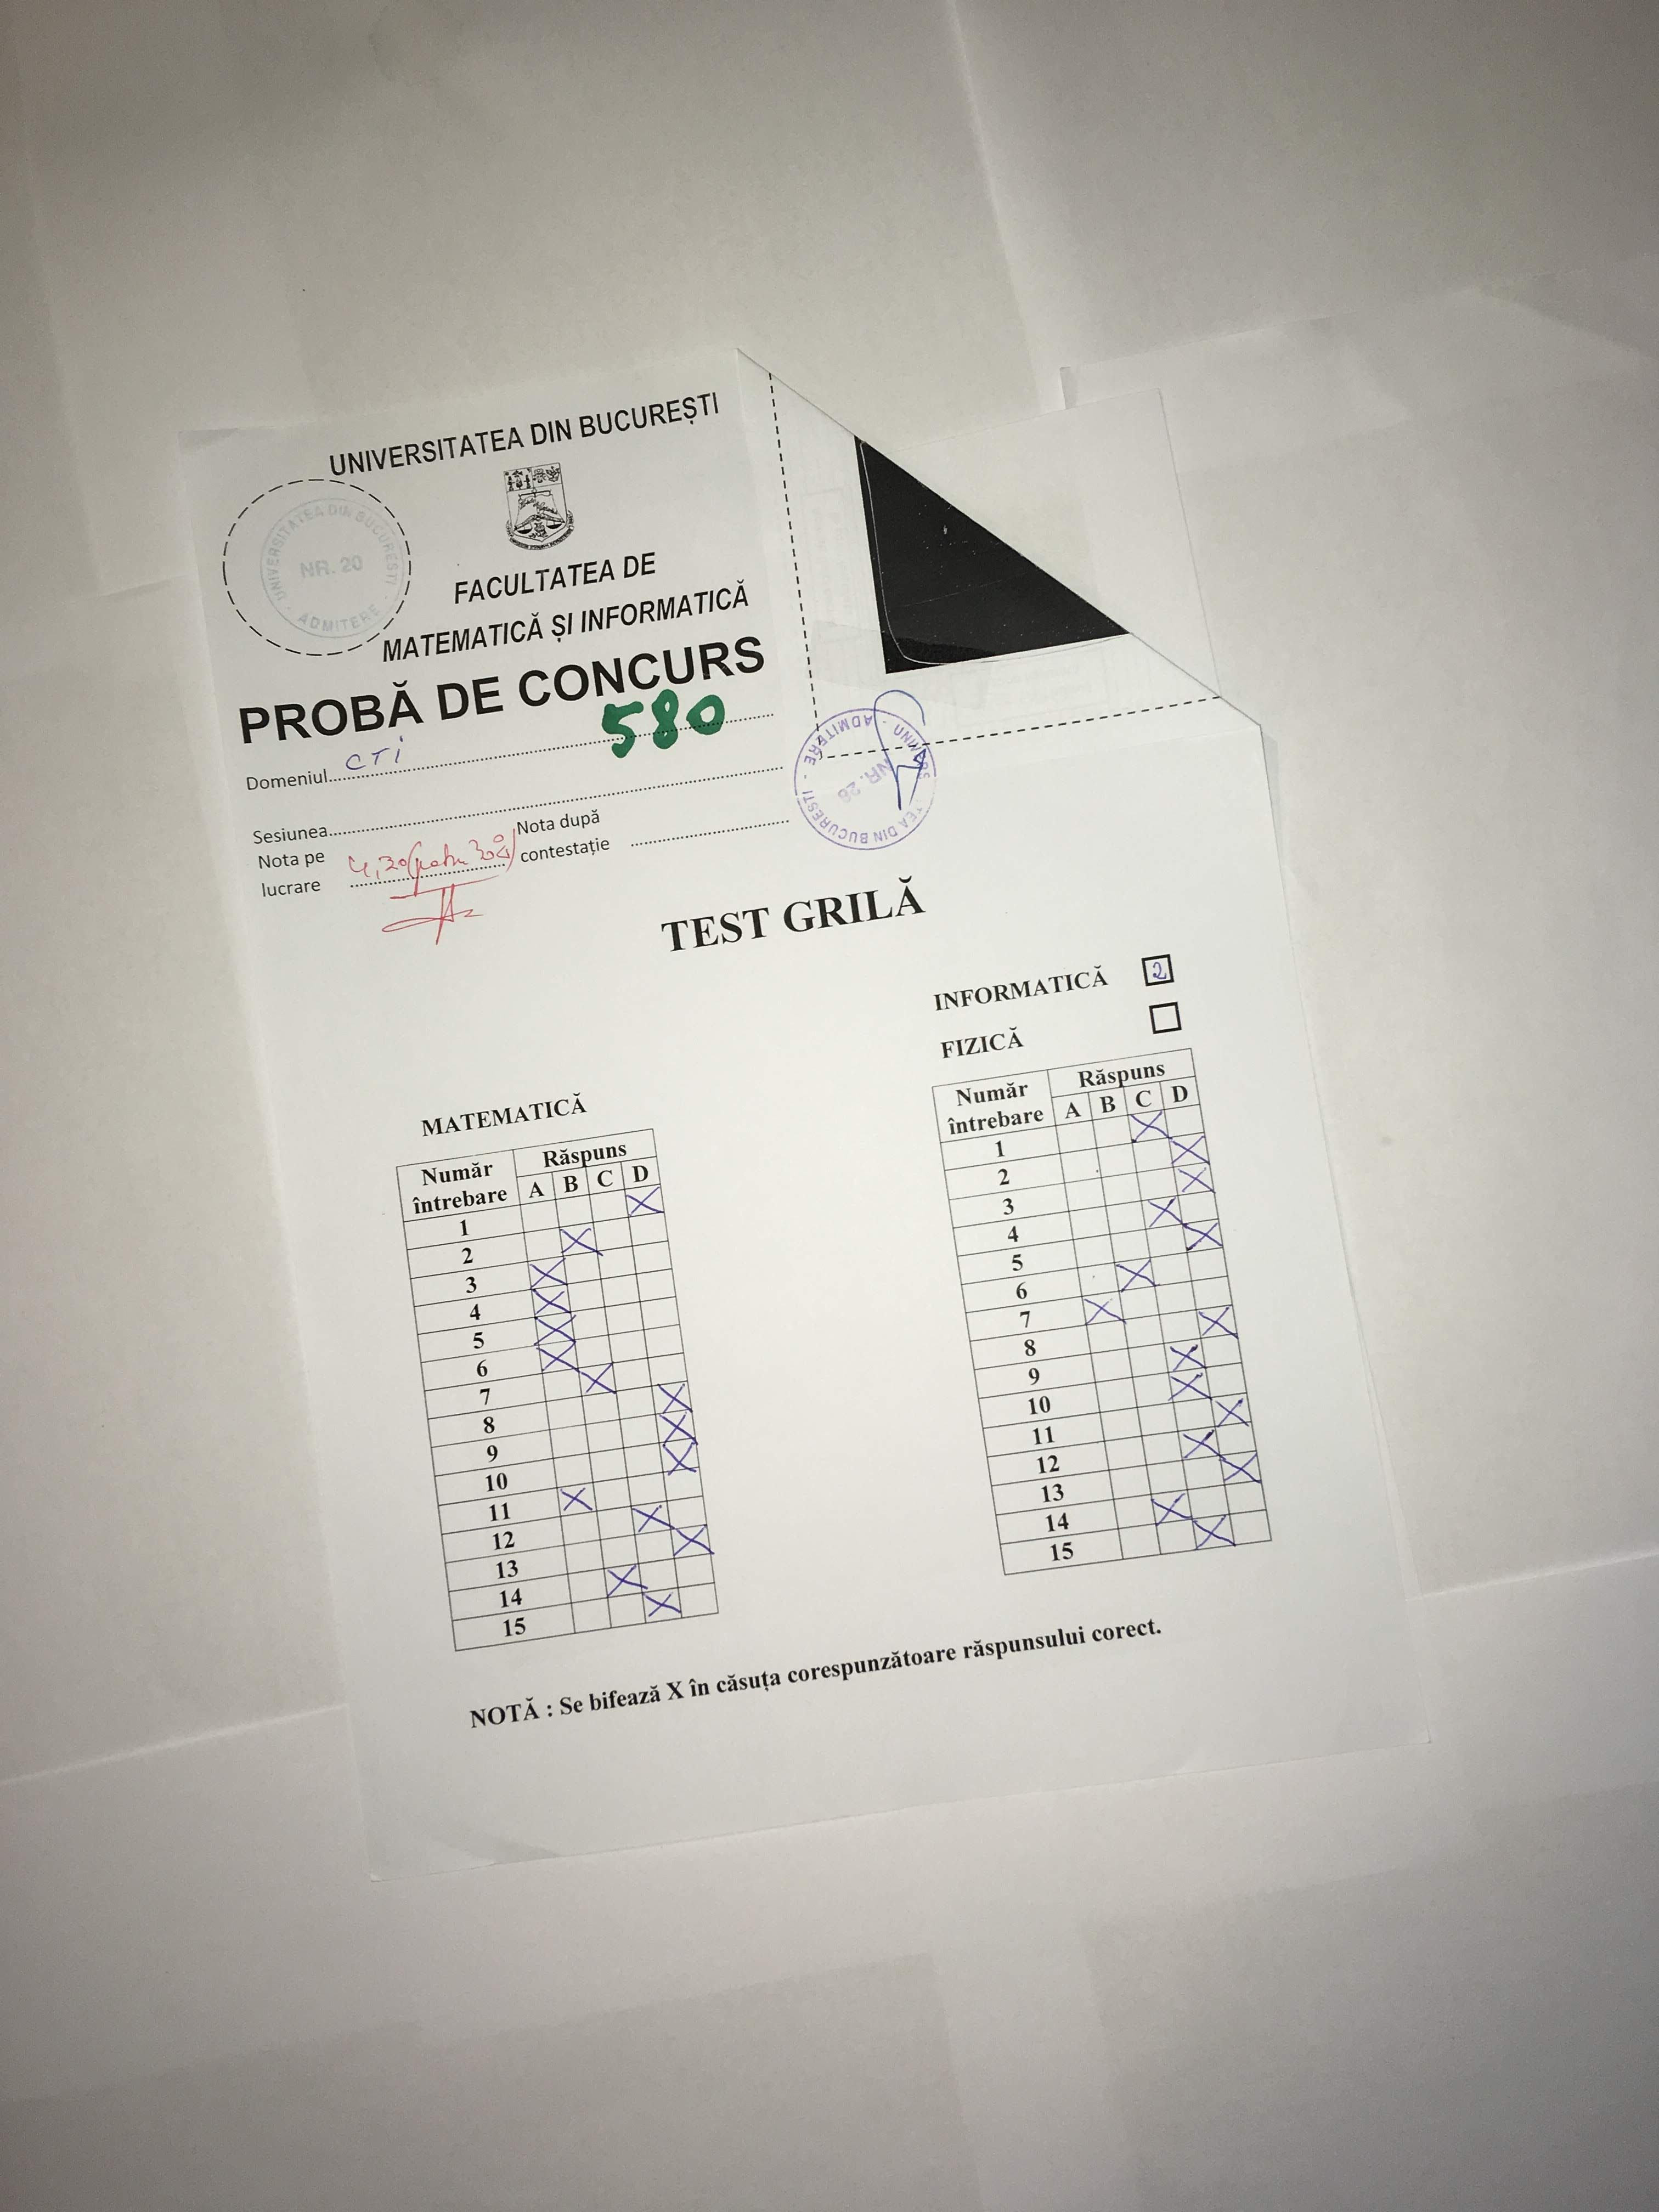 UNIVERSITATEA DIN BUCUREȘTI
UNIVERSITATEA DIN BUCURESTI
NR. 20
· ADMITERE ·
FACULTATEA DE
MATEMATICĂ ȘI INFORMATICĂ
PROBĂ DE CONCURS
580
Domeniul CTI
Sesiunea
Nota pe lucrare 4,20 (patru 20%)
Nota după contestație
ADMITERE
NR. 26
DIN BUCURESTI
TEST GRILĂ
INFORMATICĂ 2
FIZICĂ
MATEMATICĂ
Număr întrebare Răspuns
A B C D
1 X
2 X
3 X
4 X
5 X
6 X
7 X
8 X
9 X
10 X
11 X
12 X
13 X
14 X
15 X
Număr întrebare Răspuns
A B C D
1 X
2 X
3 X
4 X
5 X
6 X
7 X
8 X
9 X
10 X
11 X
12 X
13 X
14 X
15 X
NOTĂ : Se bifează X în căsuța corespunzătoare răspunsului corect.